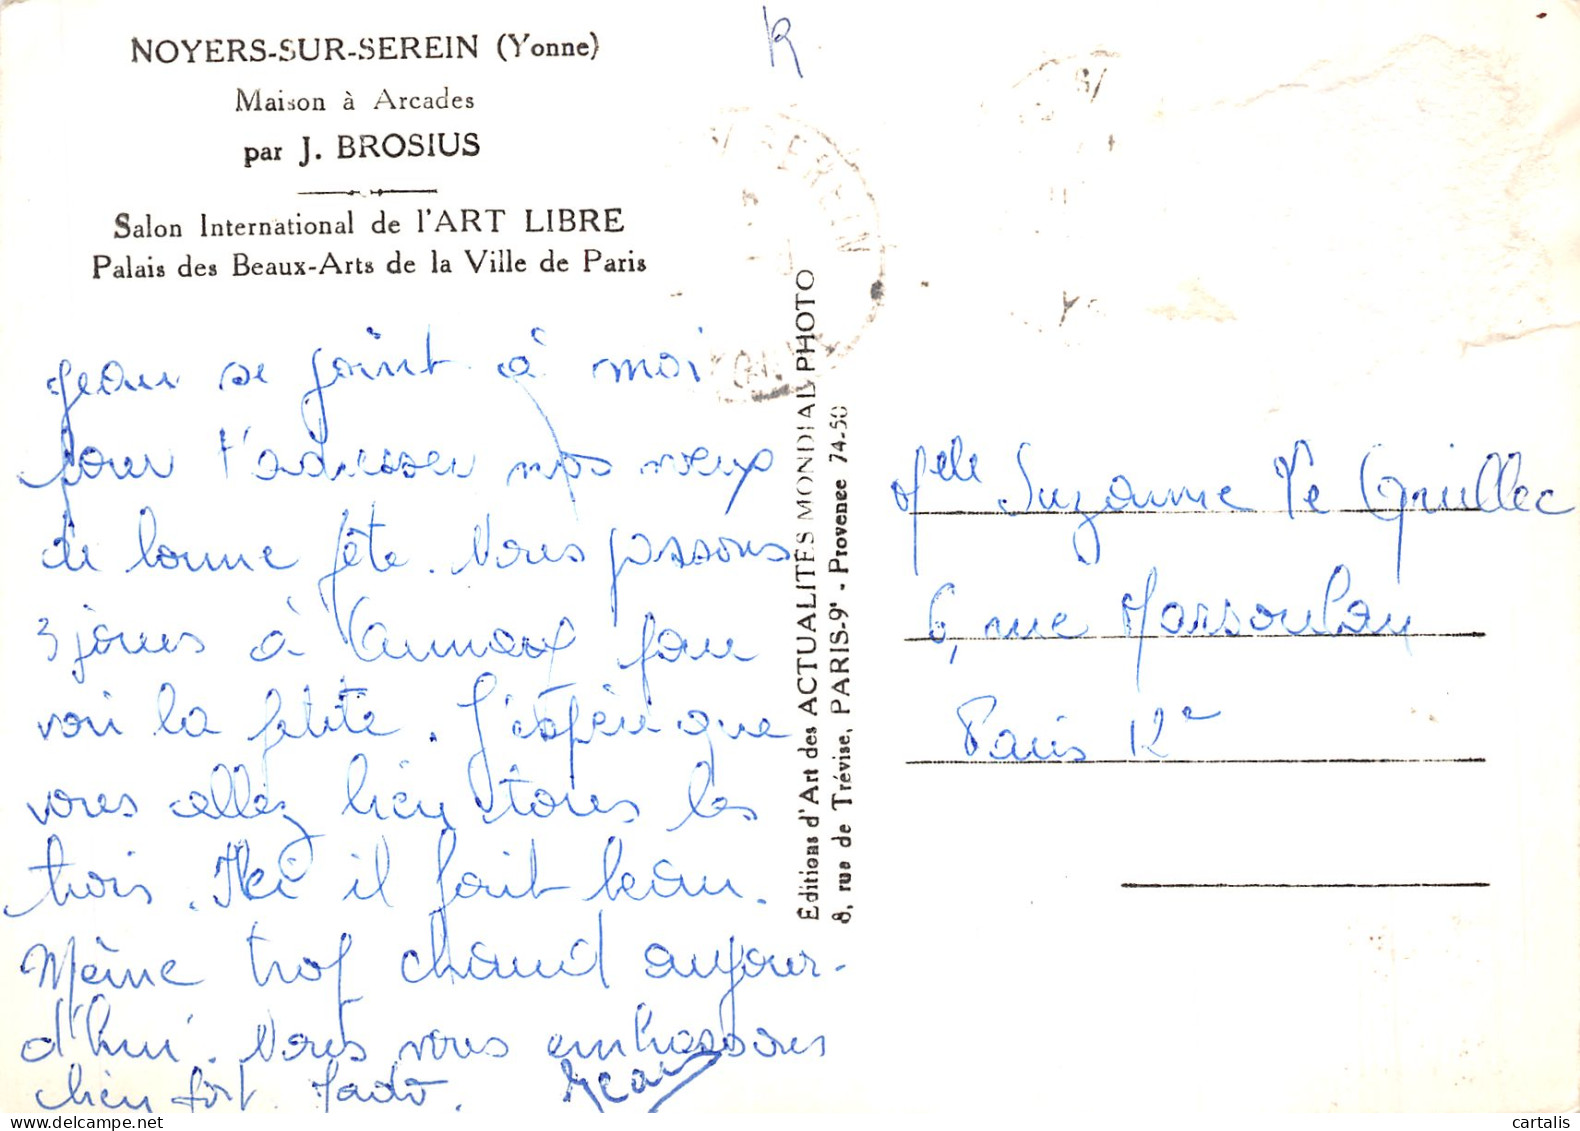 NOYERS-SUR-SEREIN (Yonne)
Maison à Arcades
par J. BROSIUS
Salon International de l'ART LIBRE
Palais des Beaux-Arts de la Ville de Paris
R
SEREIN
Jean se joint à moi
pour t'adresser nos voeux
de bonne fête. Nous passons
3 jours à Annoux pour
voir la petite. J'espère que
vous allez bien tous les
trois. Ici il fait beau.
Même trop chaud aujour-
d'hui. Nous vous embrassons
bien fort. Mado. Jean
Editions d'Art des ACTUALITÉS MONDIAL PHOTO
8, rue de Trévise, PARIS-9e - Provence 74-50
Melle Suzanne Le Guillec
6, rue Marsoulan
Paris 12e
cartalis